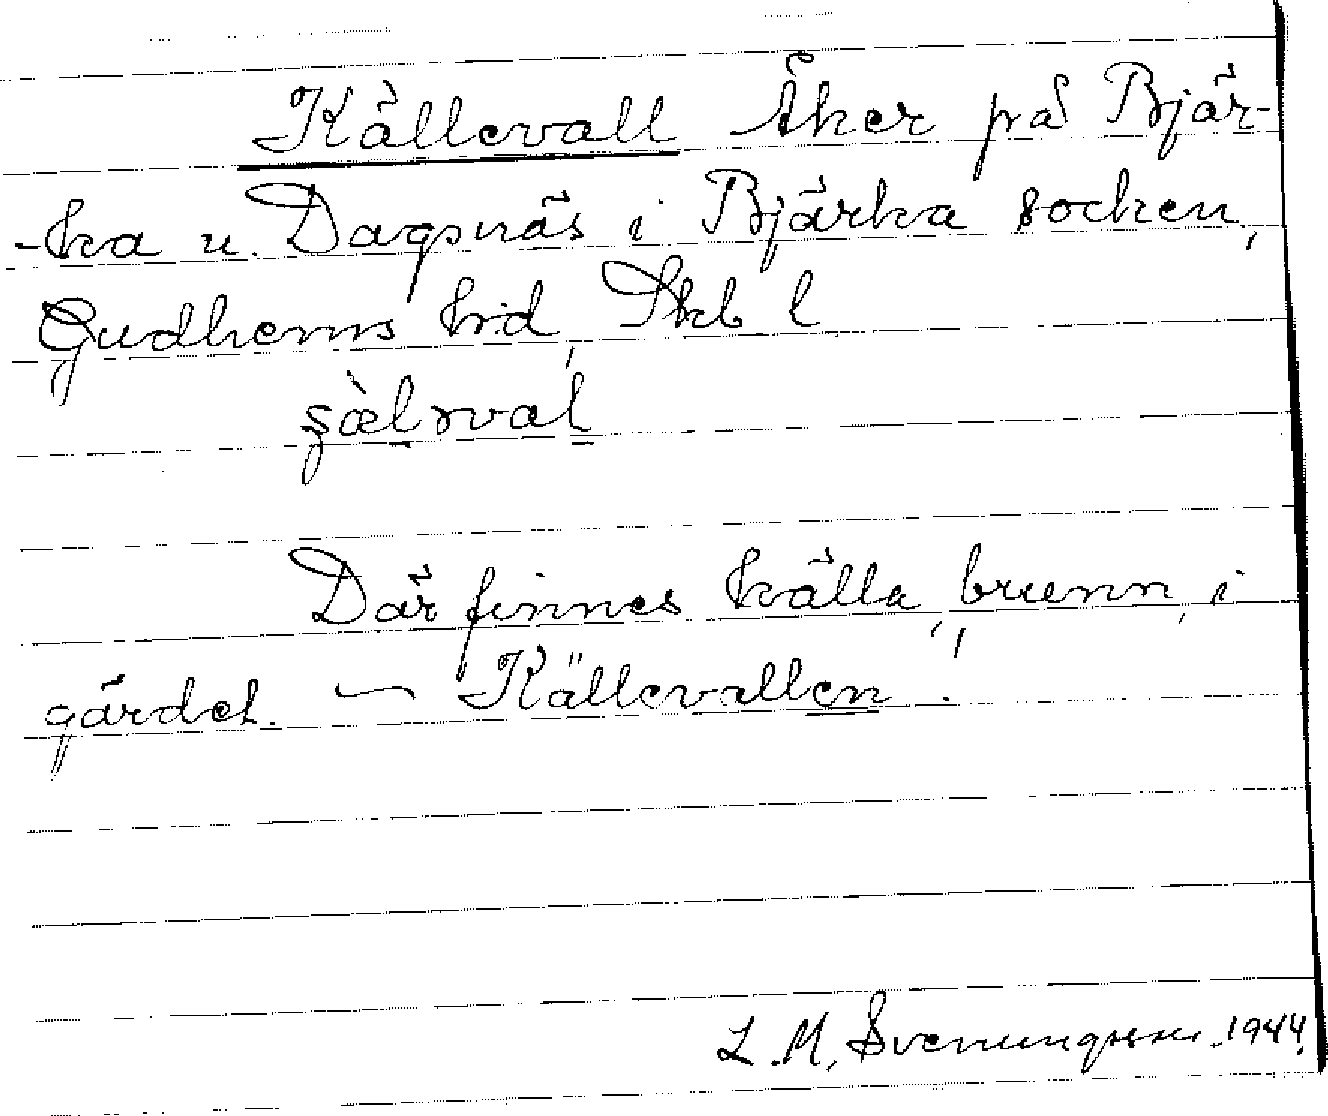 Källevall Åker på Bjär-
-ka u. Dagsnäs i Bjärka socken,
Gudhems hd, Skb l
Där finnes källa, brunn, i
gärdet. — Källevallen.
L. M. Svenungsson. 1944.